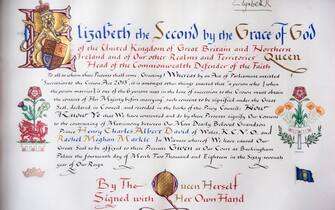 Elizabeth R
Elizabeth the Second by the Grace of God
of the United Kingdom of Great Britain and Northern
Ireland and of Our other Realms and Territories Queen
Head of the Commonwealth Defender of the Faith
To all to whom these Presents shall come, Greeting! Whereas by an Act of Parliament entituled
Succession to the Crown Act 2013, it is amongst other things enacted that "a person who (when
the person marries) is one of the 6 persons next in the line of succession to the Crown must obtain
the consent of Her Majesty before marrying" such consent to be signified under the Great
Seal, declared in Council, and recorded in the books of the Privy Council; Now
Know Ye that We have consented and do by these Presents signify Our Consent
to the contracting of Matrimony between Our Most Dearly Beloved Grandson
Prince Henry Charles Albert David of Wales, K.C.V.O. and
Rachel Meghan Markle In Witness whereof We have caused Our
Great Seal to be affixed to these Presents Given at Our Court at Buckingham
Palace the fourteenth day of March Two Thousand and Eighteen in the Sixty-seventh
year of Our Reign
By The Queen Herself
Signed with Her Own Hand